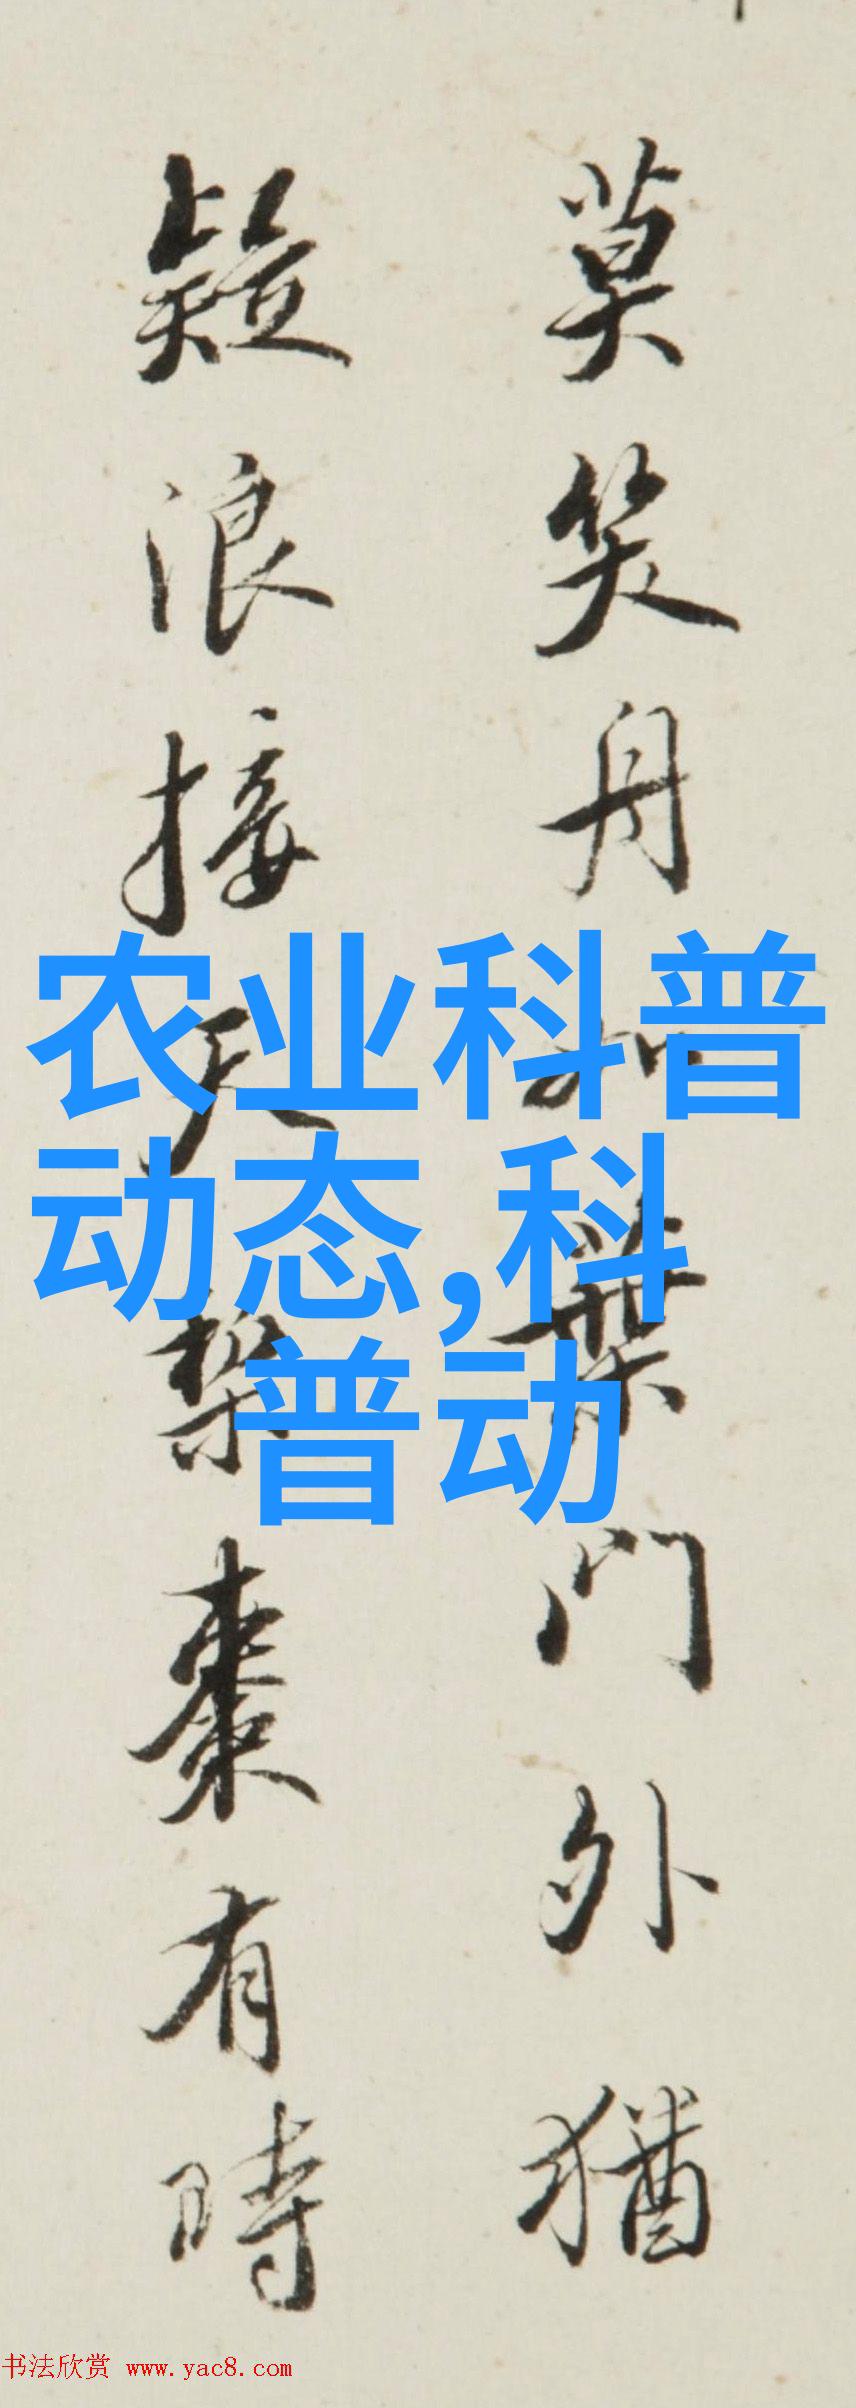 莫笑舟如葉門外猶
疑浪接天梨棗有時
农业科普
动态,科
普动
书法欣赏 www.yac8.com